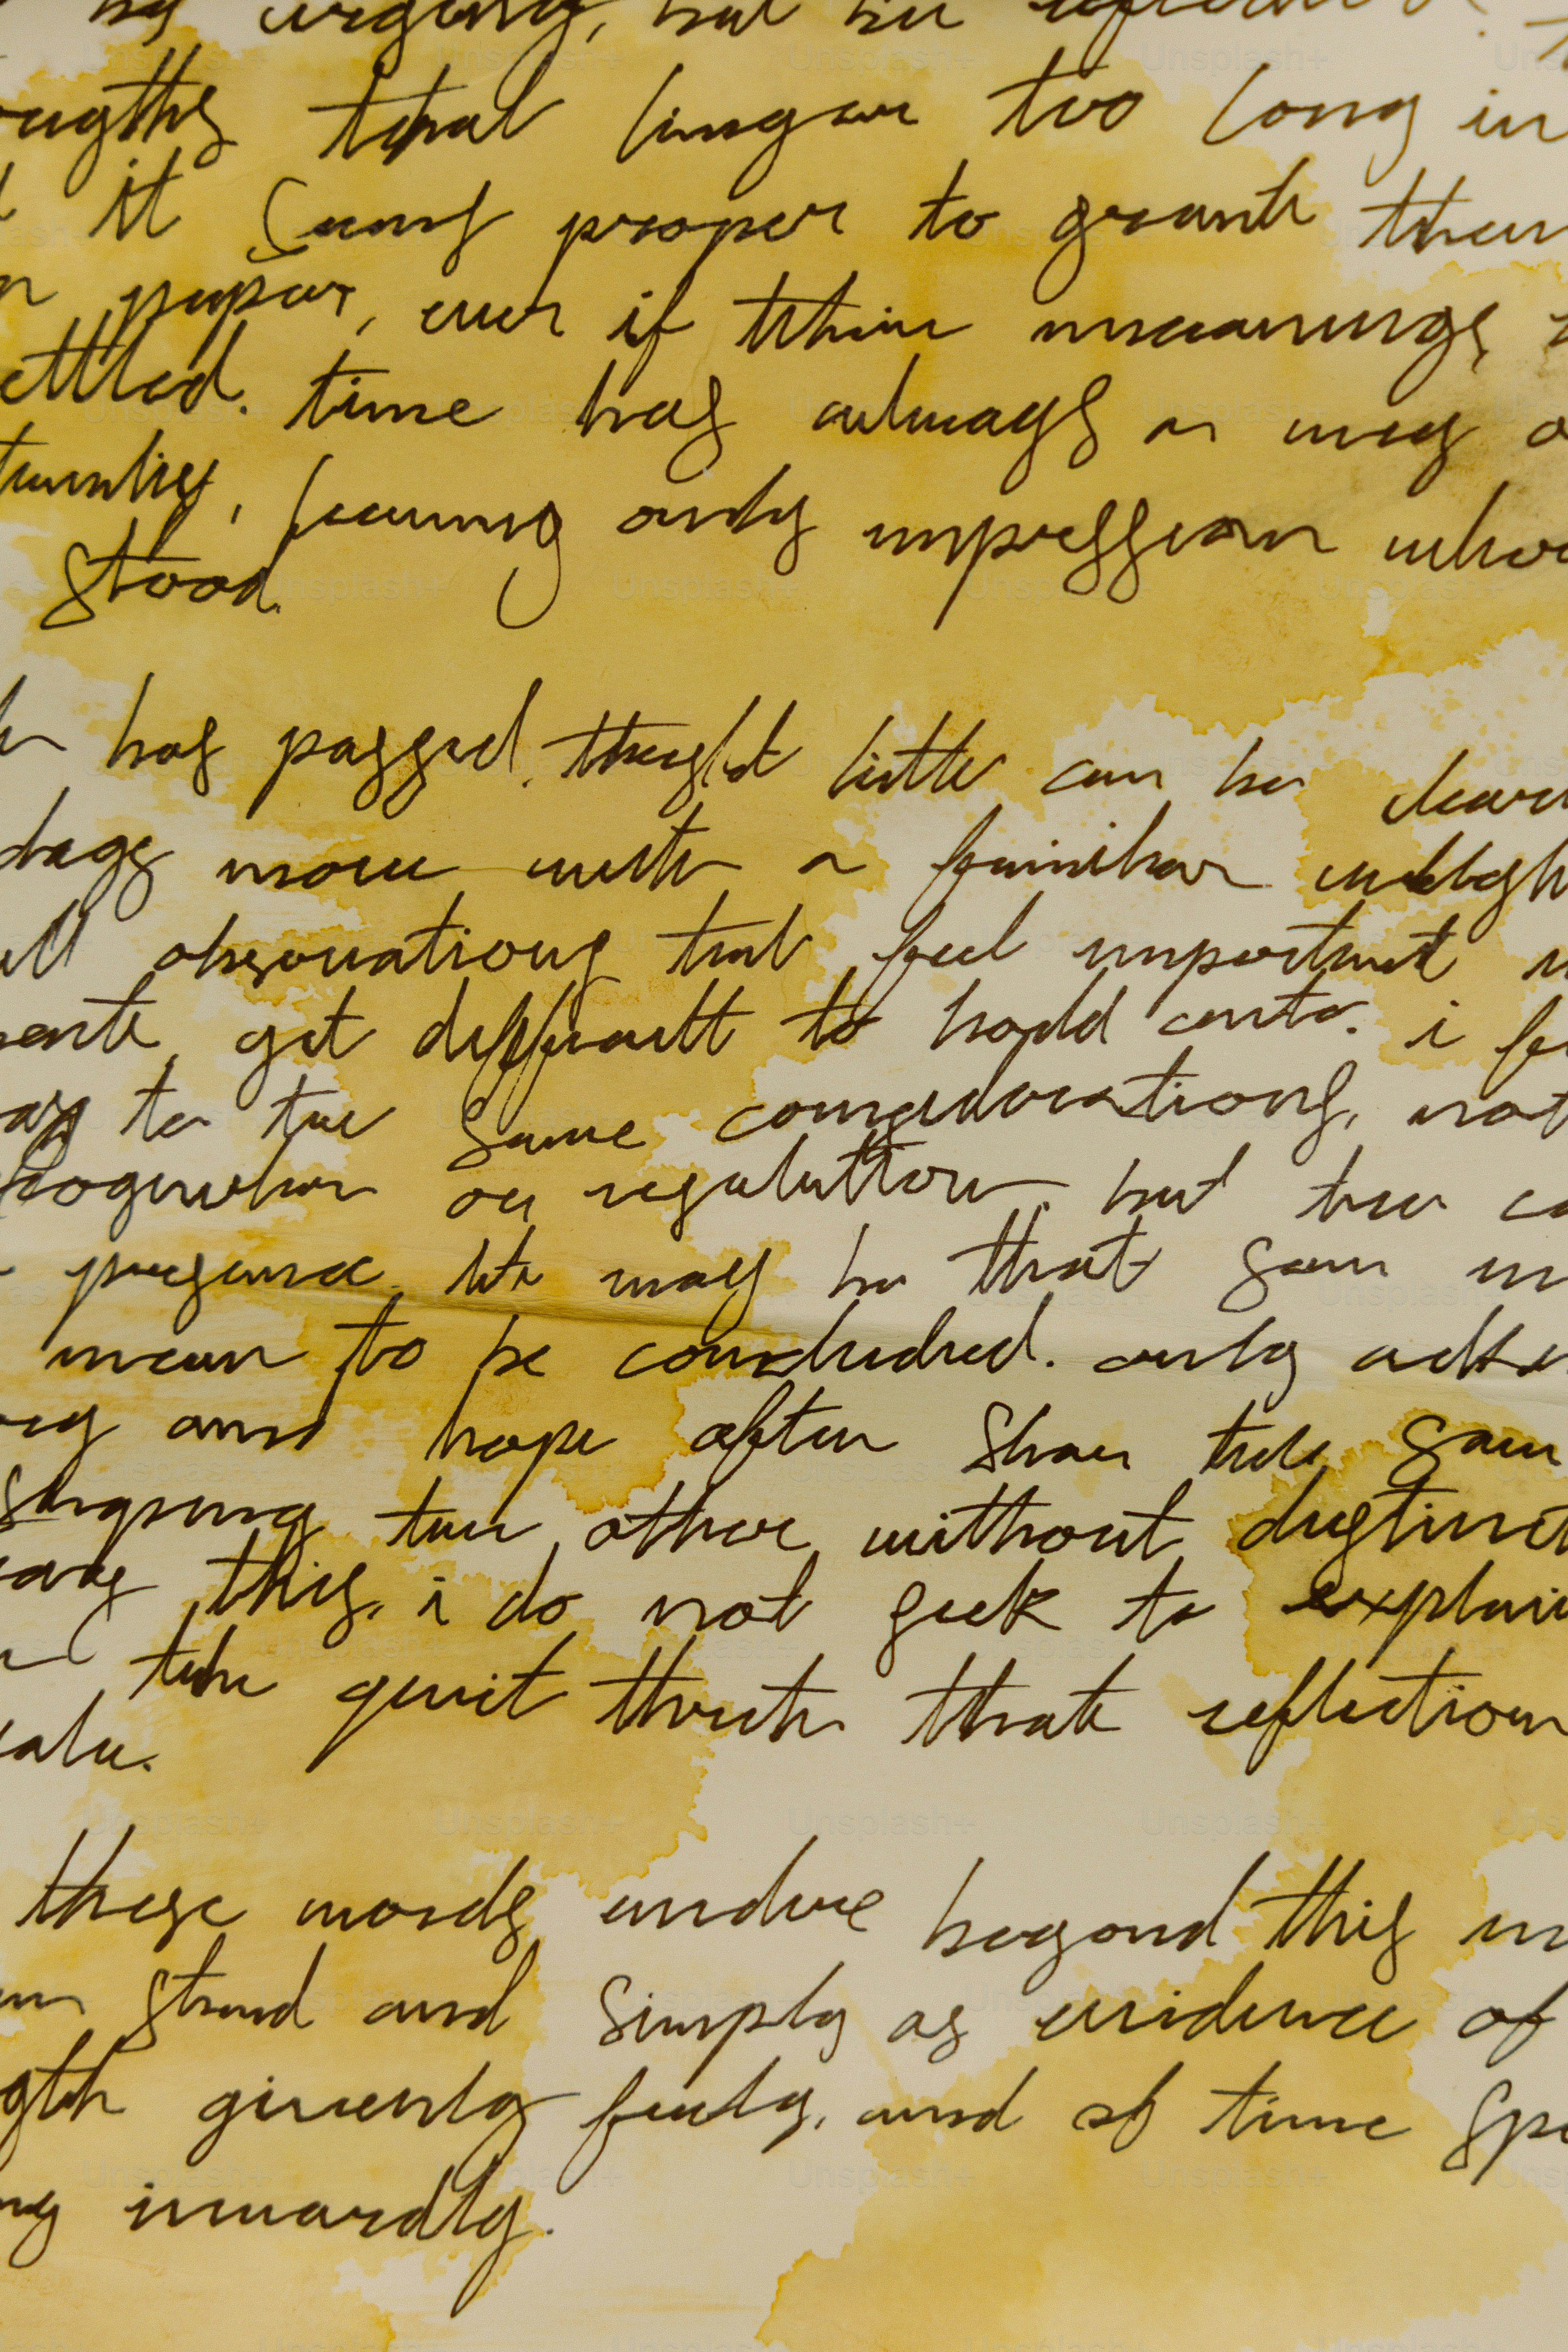 by urgency, but by reflection
that linger too long in
it seems proper to grant them
paper, even if their meanings
time has always a way o
leaving only impression whe
stood.
has passed. thought little can be
days move with a familiar weigh
observations that feel important
yet difficult to hold onto. i
to the same considerations, not
or resolution, but the
presence. it may be that some
mean to be concluded. only
and hope often share the same
the other without distinct
this, i do not seek to explain
the quiet truth that reflection
these words endure beyond this
stand and simply as evidence of
given freely, and of time spe
inwardly.